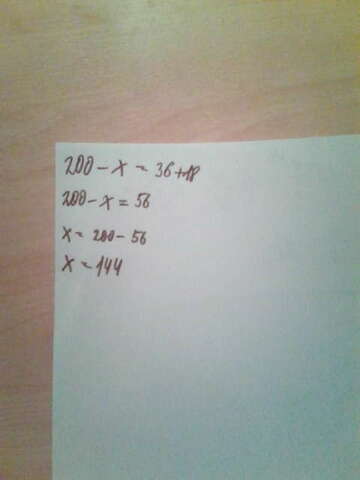 200 - x = 36+18
200 - x = 56
x = 200 - 56
x = 144